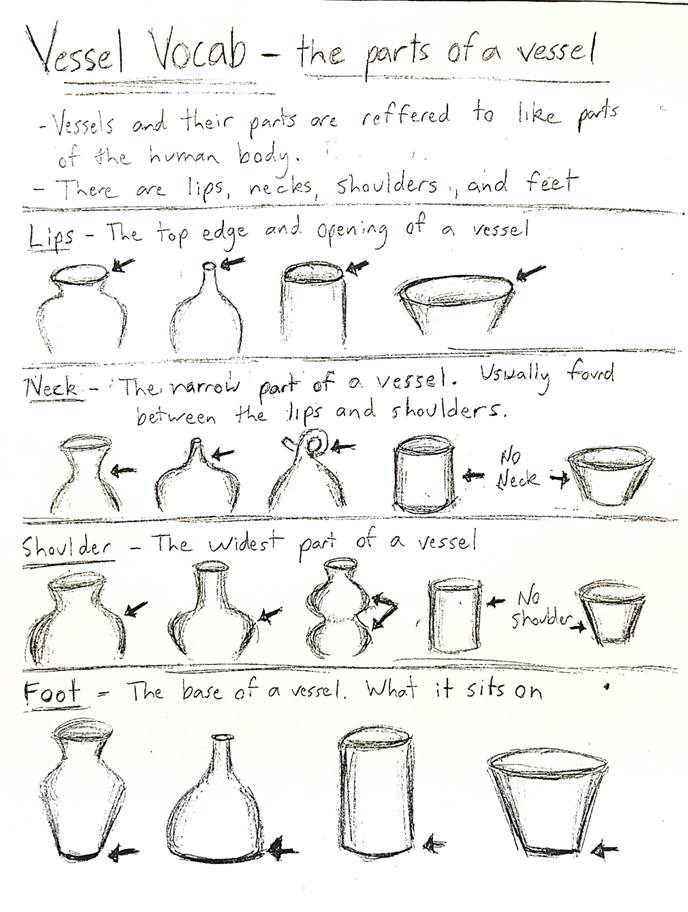 Vessel Vocab - the parts of a vessel
- Vessels and their parts are reffered to like parts
of the human body.
- There are lips, necks, shoulders, and feet
Lips - The top edge and opening of a vessel
Neck - The narrow part of a vessel. Usually found
between the lips and shoulders.
No
Neck
Shoulder - The widest part of a vessel
No
shoulder
Foot - The base of a vessel. What it sits on